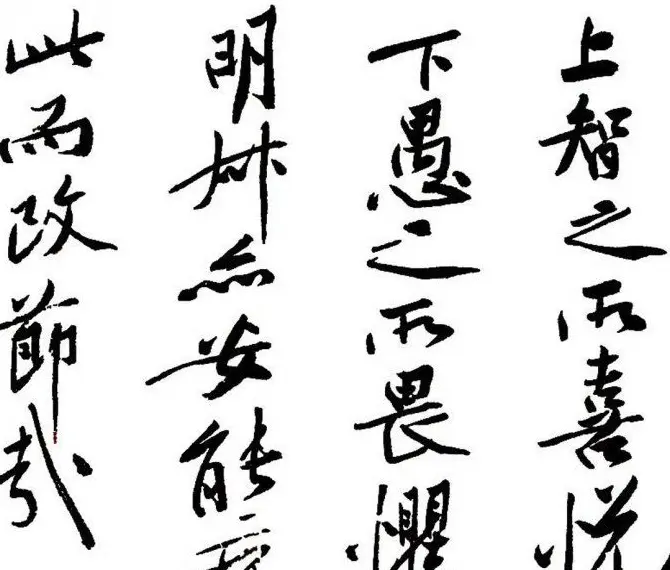 上智之所喜悦
下愚之所畏懼
明叔亦安能
此而改節哉